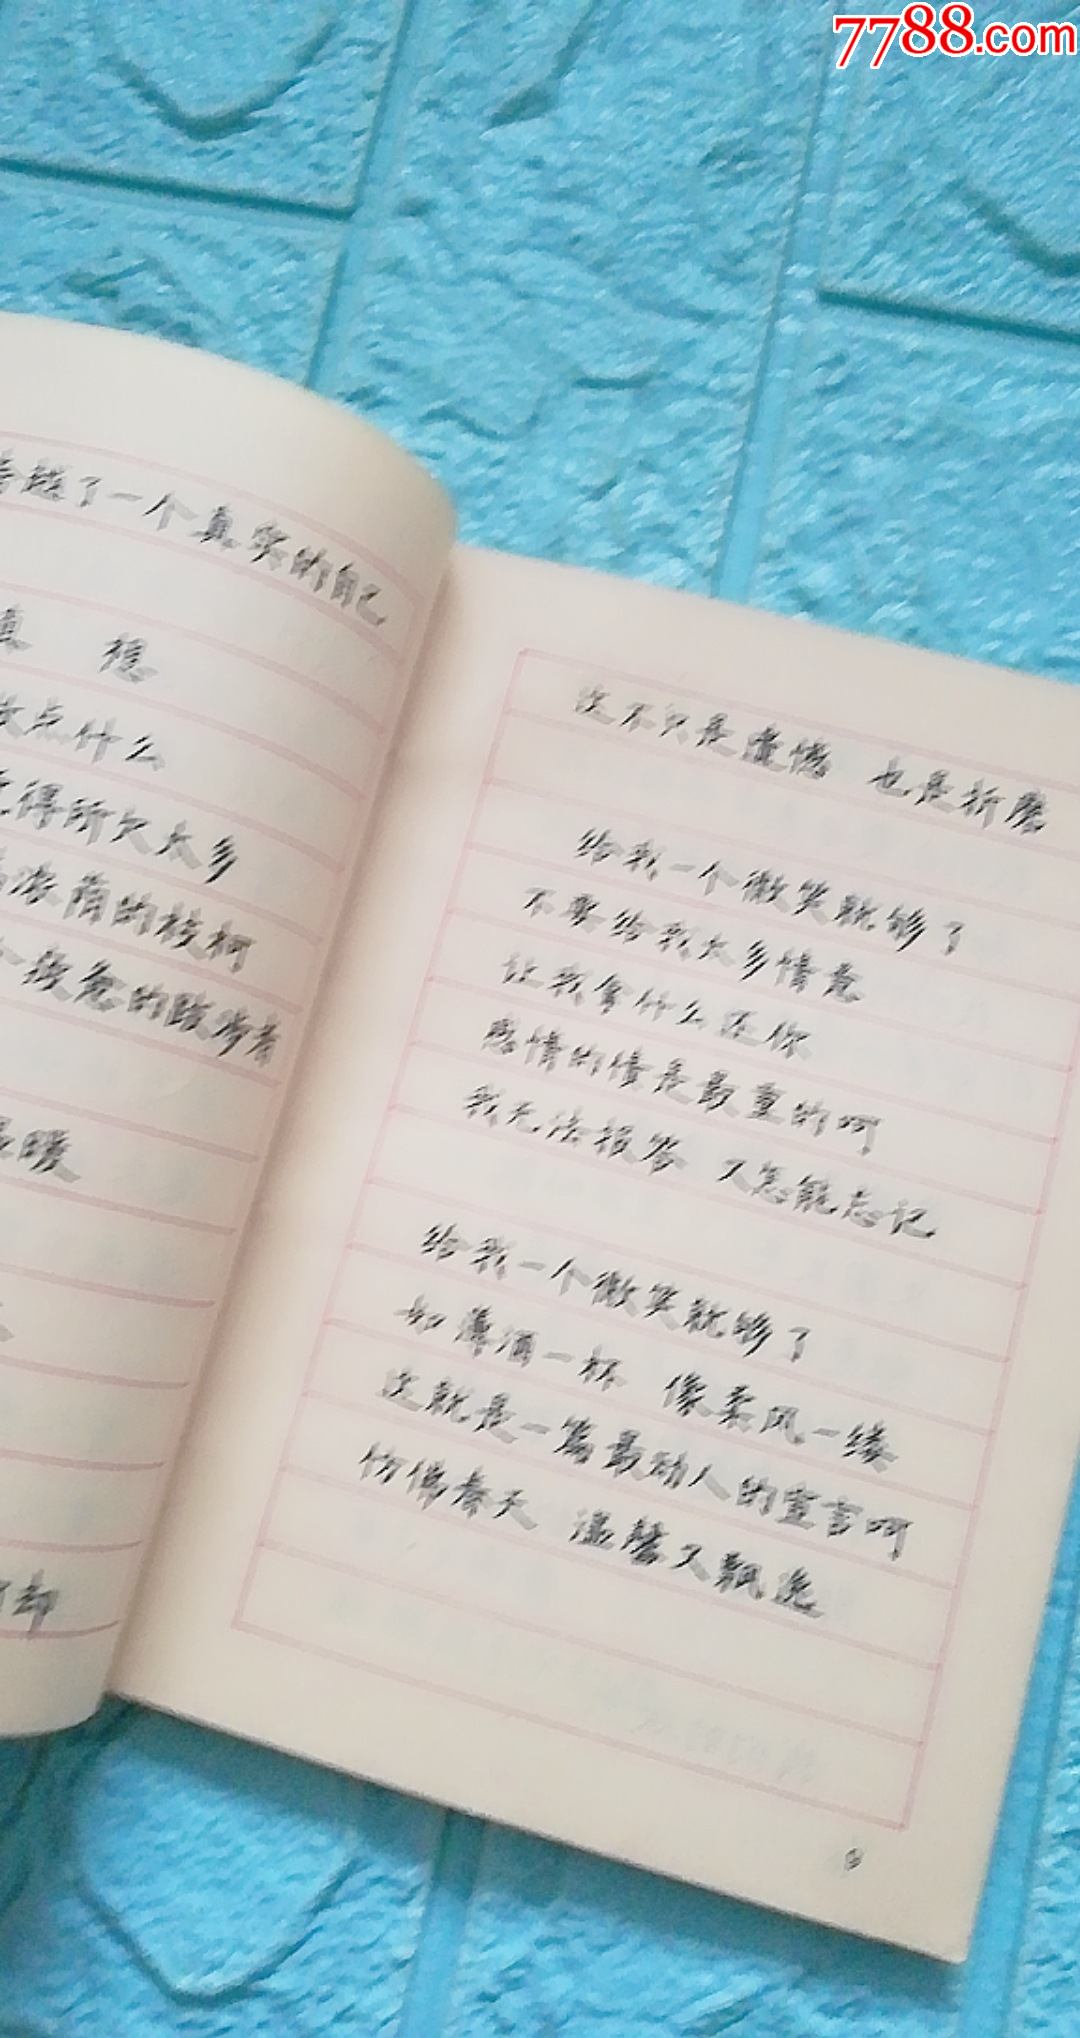 7788.com
了一个真实的自己
真 想
做点什么
得所欠太多
浓荫的枝柯
疲惫的跋涉者
暖
却
这不只是遗憾 也是折磨
给我一个微笑就够了
不要给我太多情意
让我拿什么还你
感情的债是最重的呵
我无法报答 又怎能忘记
给我一个微笑就够了
如薄酒一杯 像柔风一缕
这就是一篇最动人的宣言呵
仿佛春天 温馨又飘逸